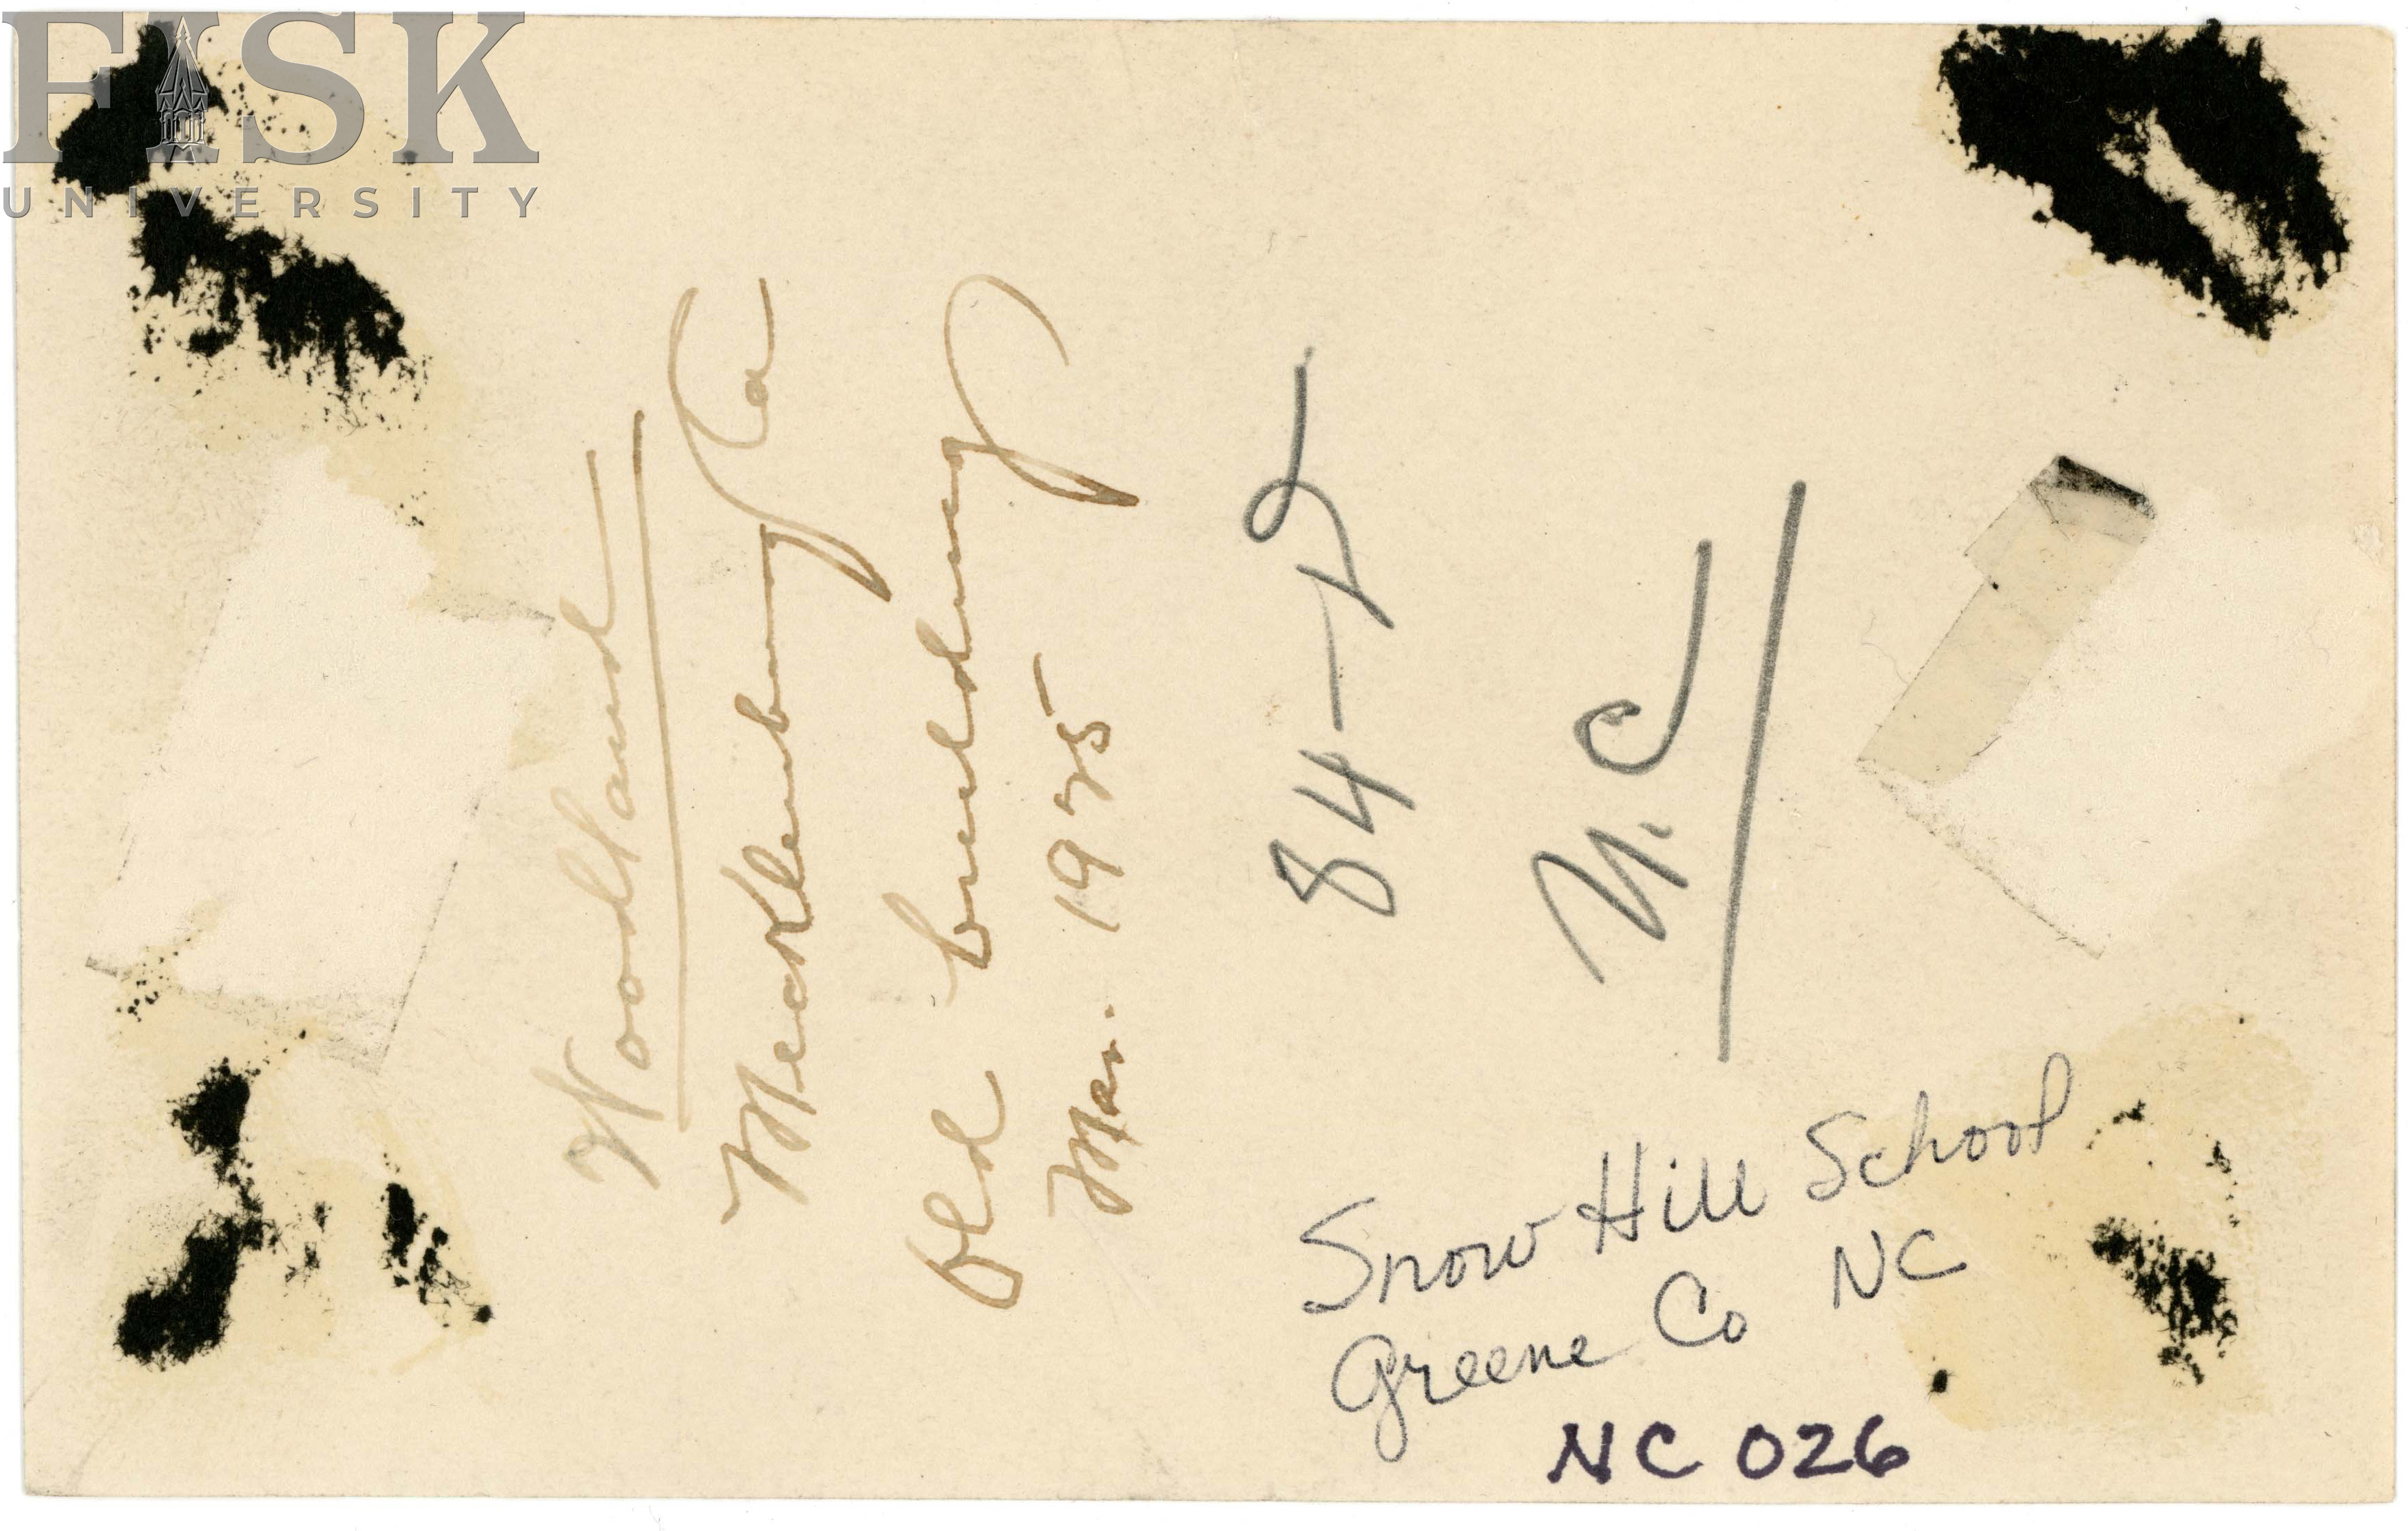 FISK
UNIVERSITY
Woodland
Mecklenburg Co
Old building
Mar. 1925
84-D
N.C
Snow Hill School
Greene Co NC
NC 026